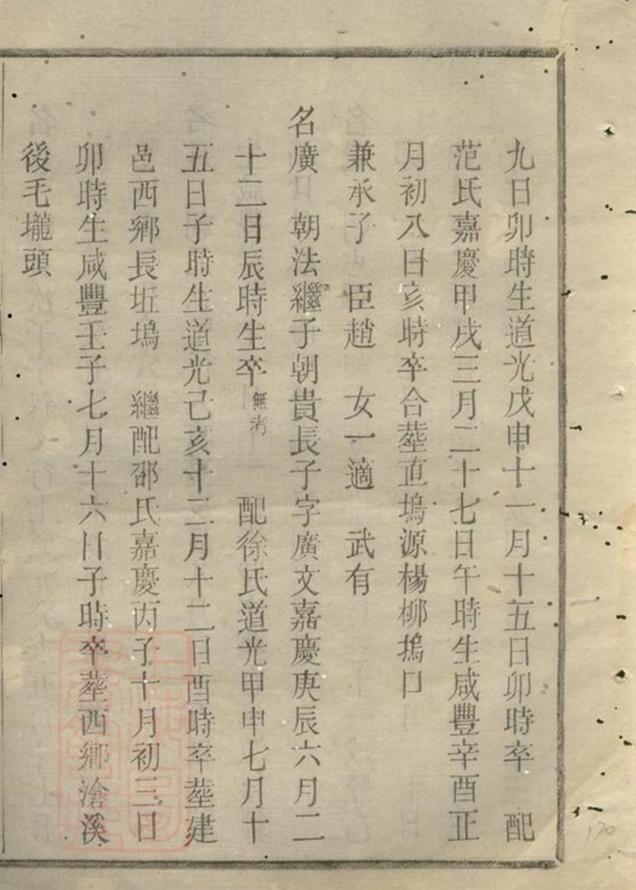 九日卯時生道光戊申十一月十五日卯時卒 配
范氏嘉慶甲戌三月二十七日午時生咸豐辛酉正
月初八日亥時卒合塟直塢源楊柳塢口
兼承子 臣趙 女一適 武有
名廣 朝法繼子朝貴長子字廣文嘉慶庚辰六月二
十二日辰時生卒無考 配徐氏道光甲申七月十
五日子時生道光己亥十二月十二日酉時卒塟建
邑西鄉長坵塢 繼配邵氏嘉慶丙子十月初三日
卯時生咸豐壬子七月十六日子時卒塟西鄉滄溪
後毛壠頭